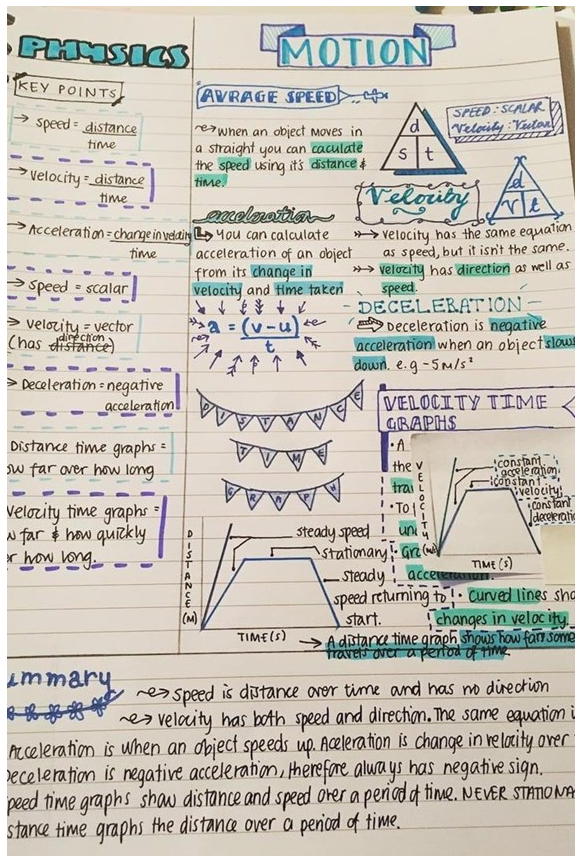 PHYSICS
MOTION
KEY POINTS
→ speed = distance
time
→ velocity = distance
time
→ Acceleration = change in velocity
time
→ speed = scalar
→ velocity = vector
direction
(has distance)
→ Deceleration = negative
acceleration
Distance time graphs =
ow far over how long
Velocity time graphs =
w far & how quickly
r how long.
AVRAGE SPEED
When an object moves in
a straight you can caculate
the speed using it's distance &
time.
d
s t
SPEED : SCALAR
Velocity : Vector
Velocity
d
v t
velocity has the same equation
as speed, but it isn't the same.
velocity has direction as well as
speed.
acceleration
You can calculate
acceleration of an object
from its change in
velocity and time taken
a = (v-u)
t
DECELERATION
Deceleration is negative
acceleration when an object slows
down. e.g -5m/s²
DISTANCE
TIME
GRAPH
DISTANCE (M)
TIME(S)
steady speed
stationary
steady
speed returning to
start.
→ A distance time graph shows how far some
travels over a period of time.
VELOCITY TIME
GRAPHS
• A
the
tra
• To
un
Gra
acceleration.
VELOCITY (M)
constant
acceleration
constant
velocity
constant
deceleratio
TIME (S)
• curved lines sho
changes in velocity.
ummary
speed is distance over time and has no direction
velocity has both speed and direction. The same equation i
Acceleration is when an object speeds up. Aceleration is change in velocity over
Deceleration is negative acceleration, therefore always has negative sign.
peed time graphs show distance and speed over a period of time. NEVER STATIONA
stance time graphs the distance over a period of time.